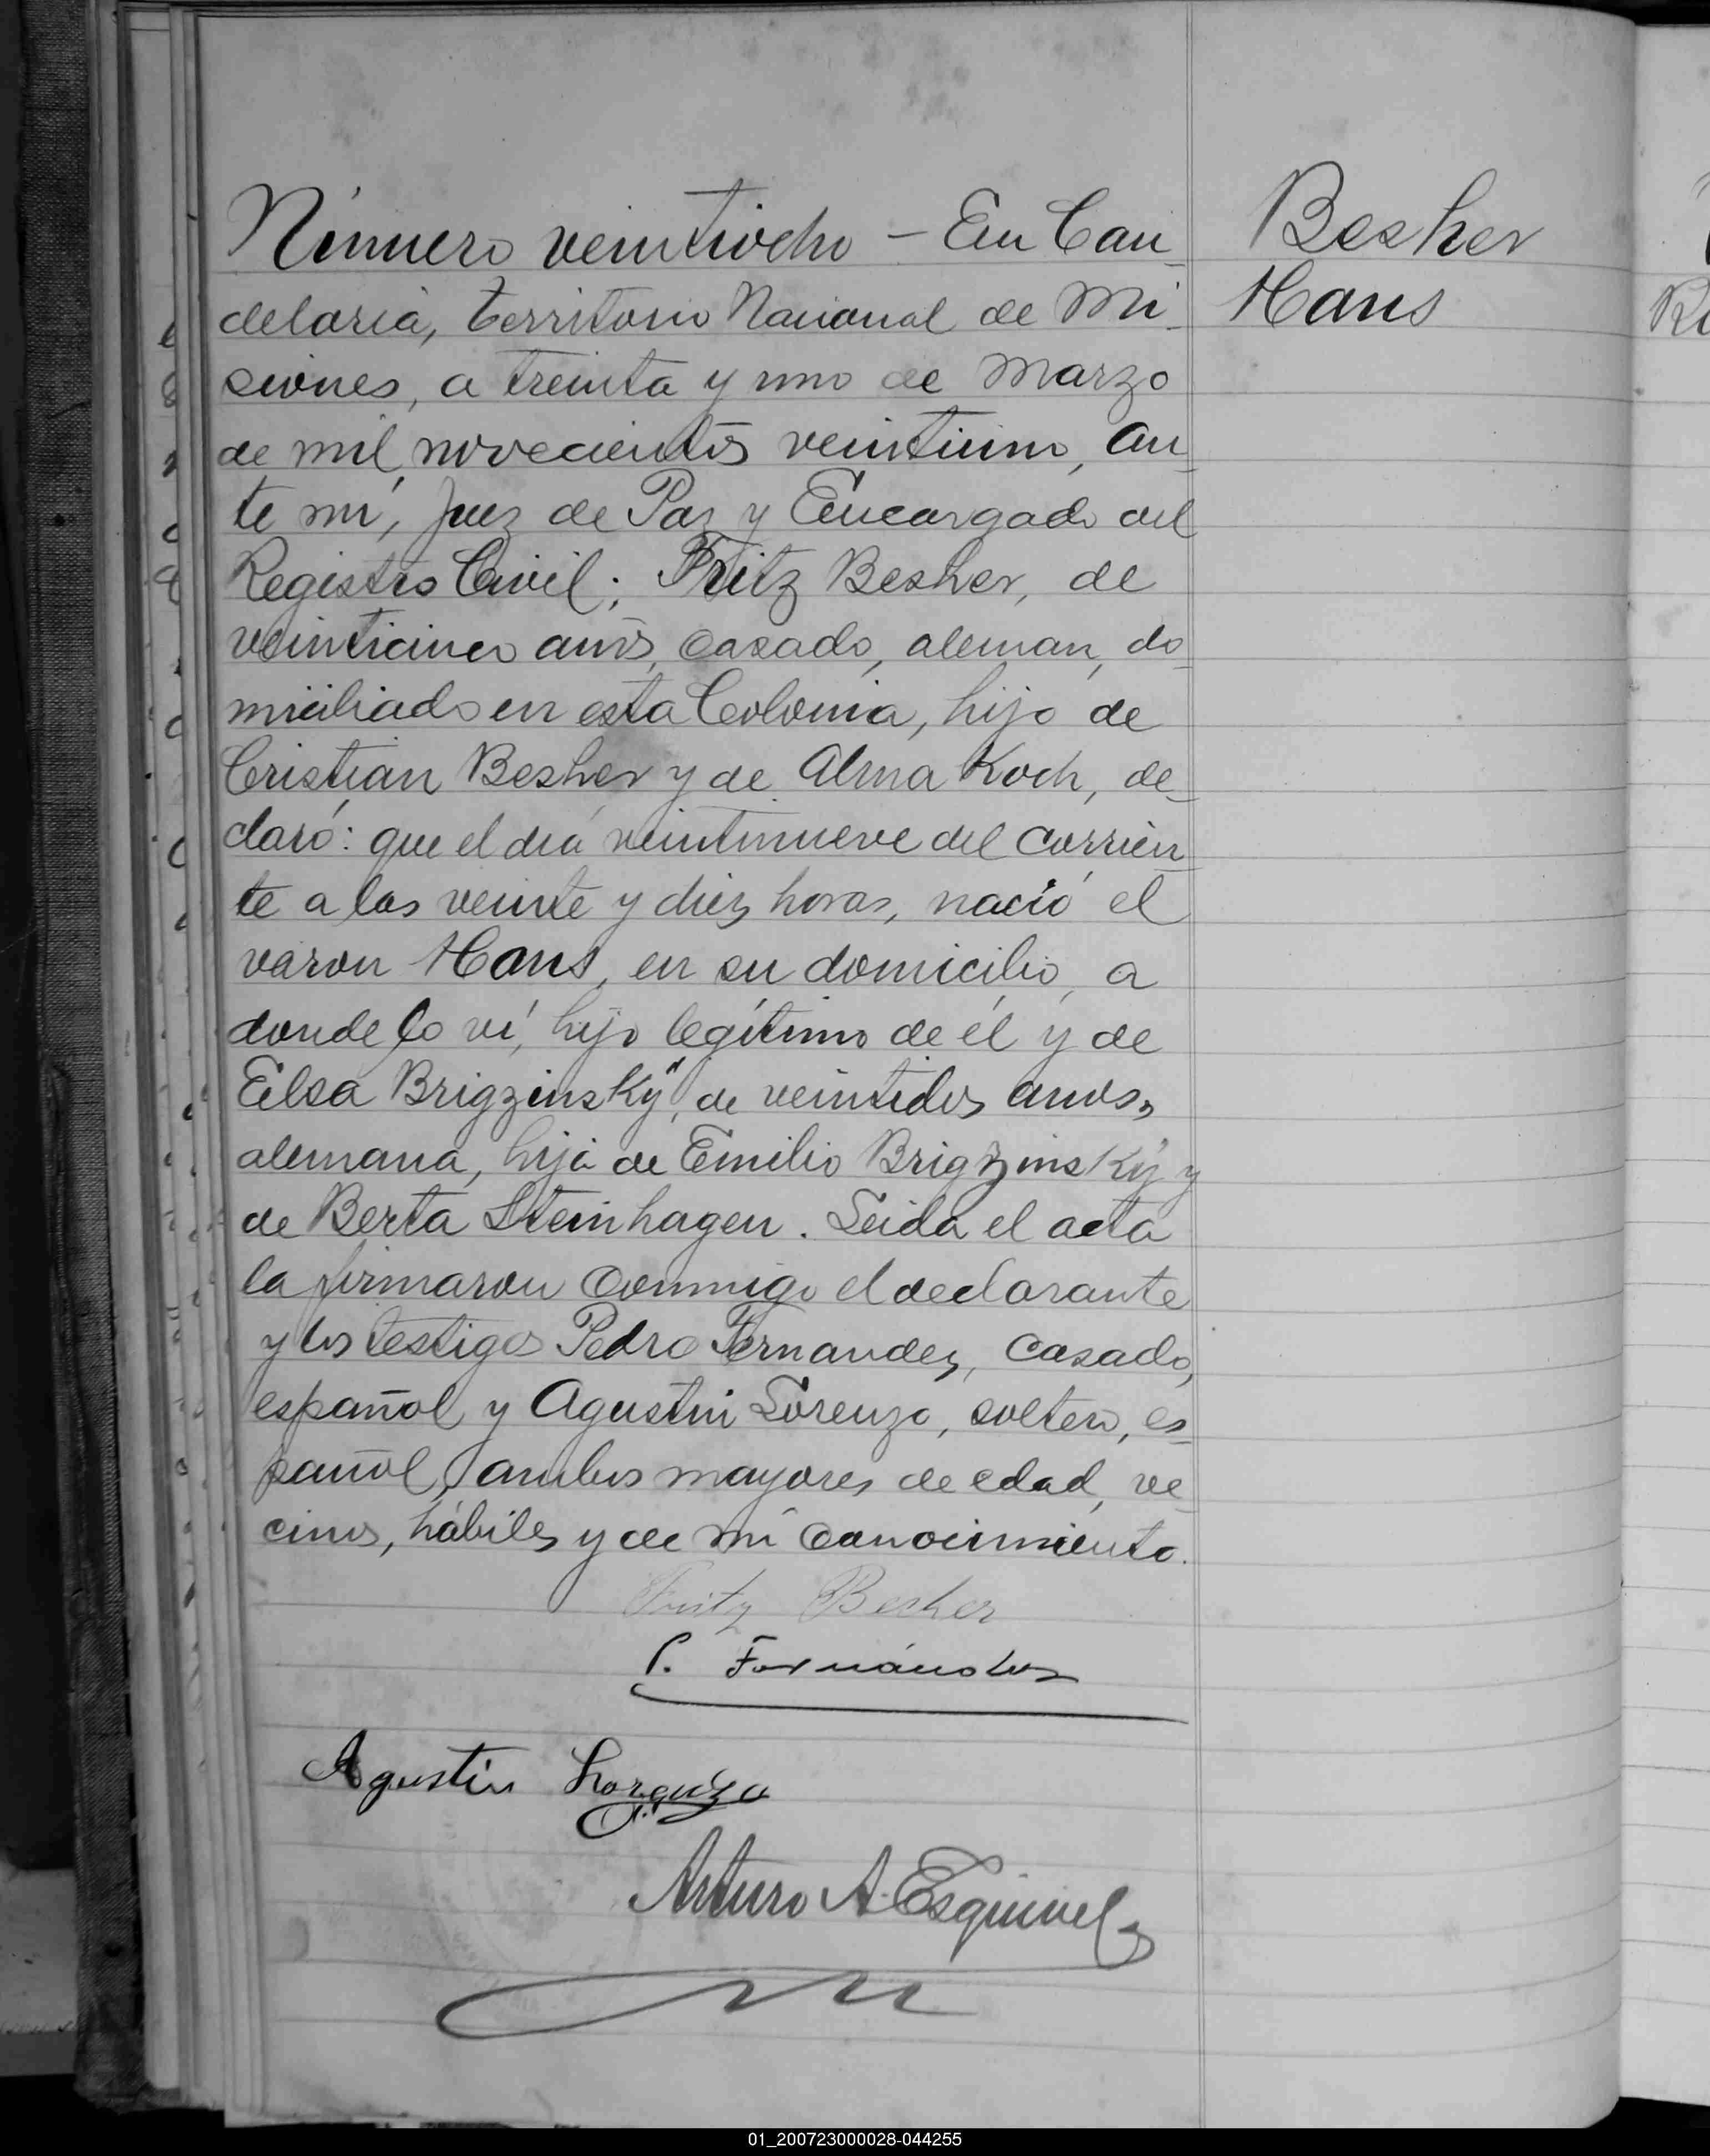 Número veintiocho – En Can-
delaria, territorio Nacional de Mi-
siones, a treinta y uno de Marzo
de mil novecientos veintiuno, an-
te mí, Juez de Paz y Encargado del
Registro Civil; Fritz Besher, de
veinticinco años, casado, aleman, do-
miciliado en esta Colonia, hijo de
Cristian Besher y de Alma Koch, de-
claró: que el día veintinueve del corrien-
te a las veinte y diez horas, nació el
varon Hans, en su domicilio, a
donde lo ví, hijo legítimo de él y de
Elsa Brigzinsky, de veintidos anos,
alemana, hija de Emilio Brigzinsky y
de Berta Steinhagen. Leida el acta
la firmaron conmigo el declarante
y los testigos Pedro Fernandez, casado,
español y Agustin Lorenzo, soltero, es-
pañol, ambos mayores de edad, ve-
cinos, hábiles y de mi conocimiento.
Fritz Besher
P. Fernández
Agustin Lorenzo
Arturo A. Esquivel
Besher
Hans
01_200723000028-044255